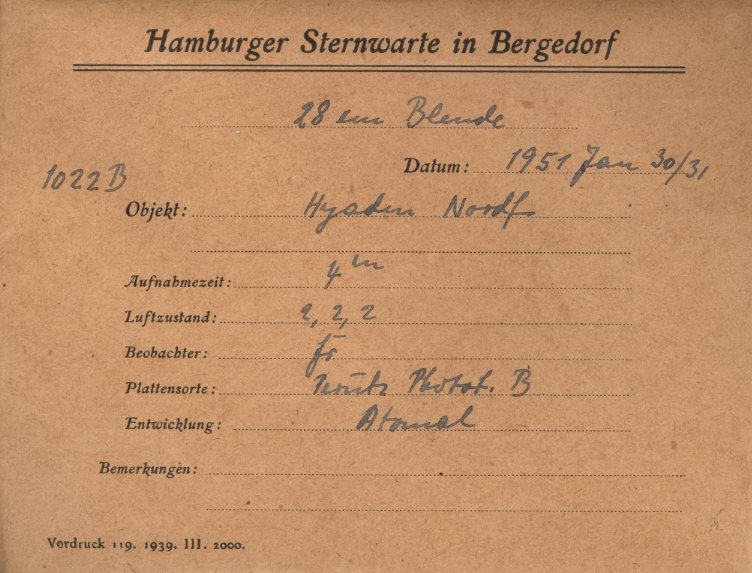 Hamburger Sternwarte in Bergedorf
28 cm Blende
Datum: 1951 Jan 30/31
1022 B
Objekt: Hyaden Nordf
Aufnahmezeit: 4 m
Luftzustand: 2, 2, 2
Beobachter:
Plattensorte: Perutz Photot. B
Entwicklung: Atomal
Bemerkungen:
Vordruck 119. 1939. III. 2000.